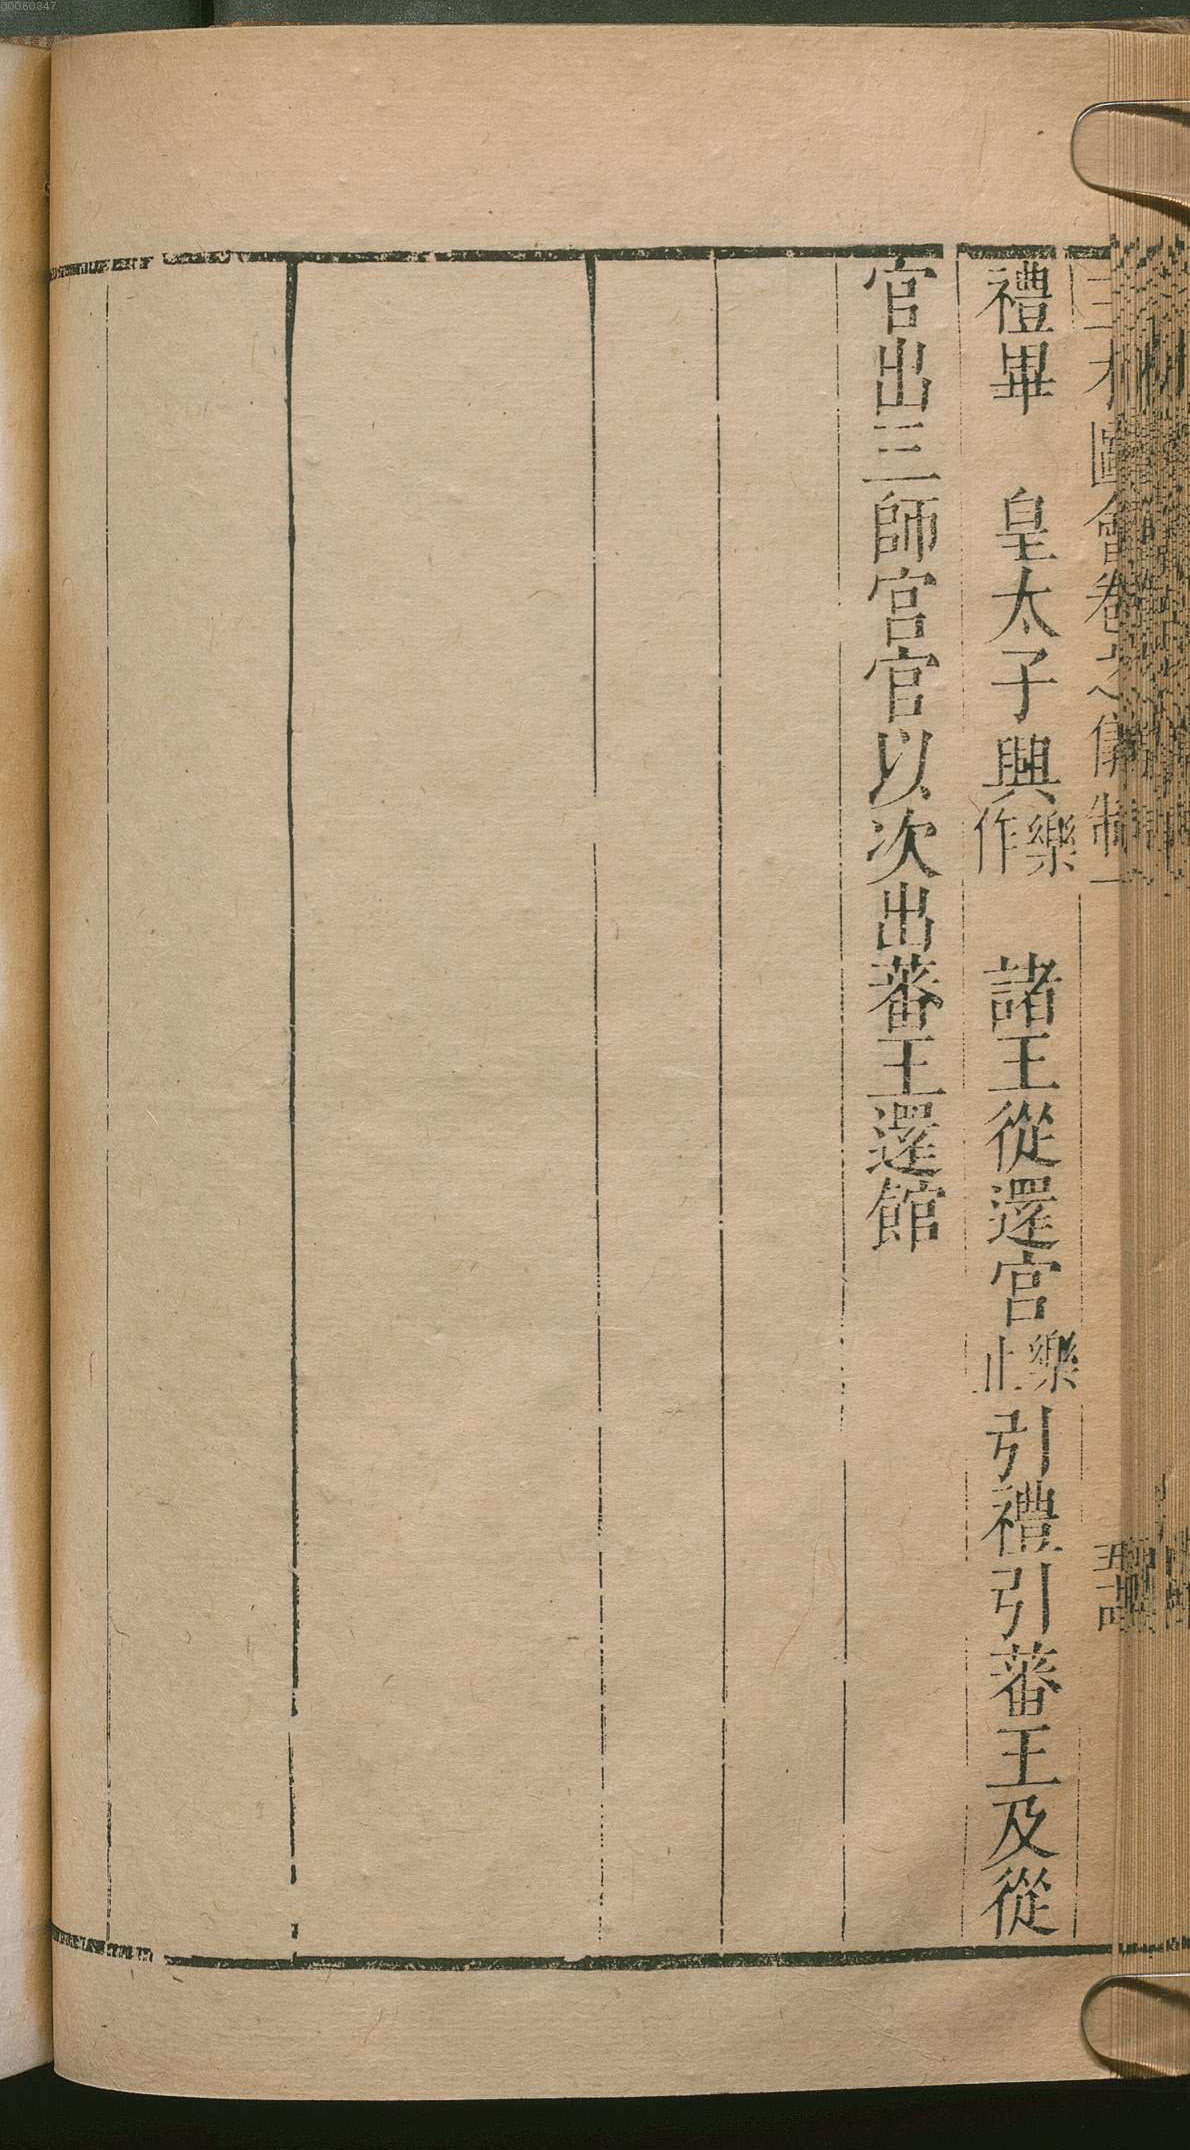 禮畢　皇太子興樂作　諸王從還宮樂止引禮引蕃王及從
官出三師宮官以次出蕃王還館
00060347